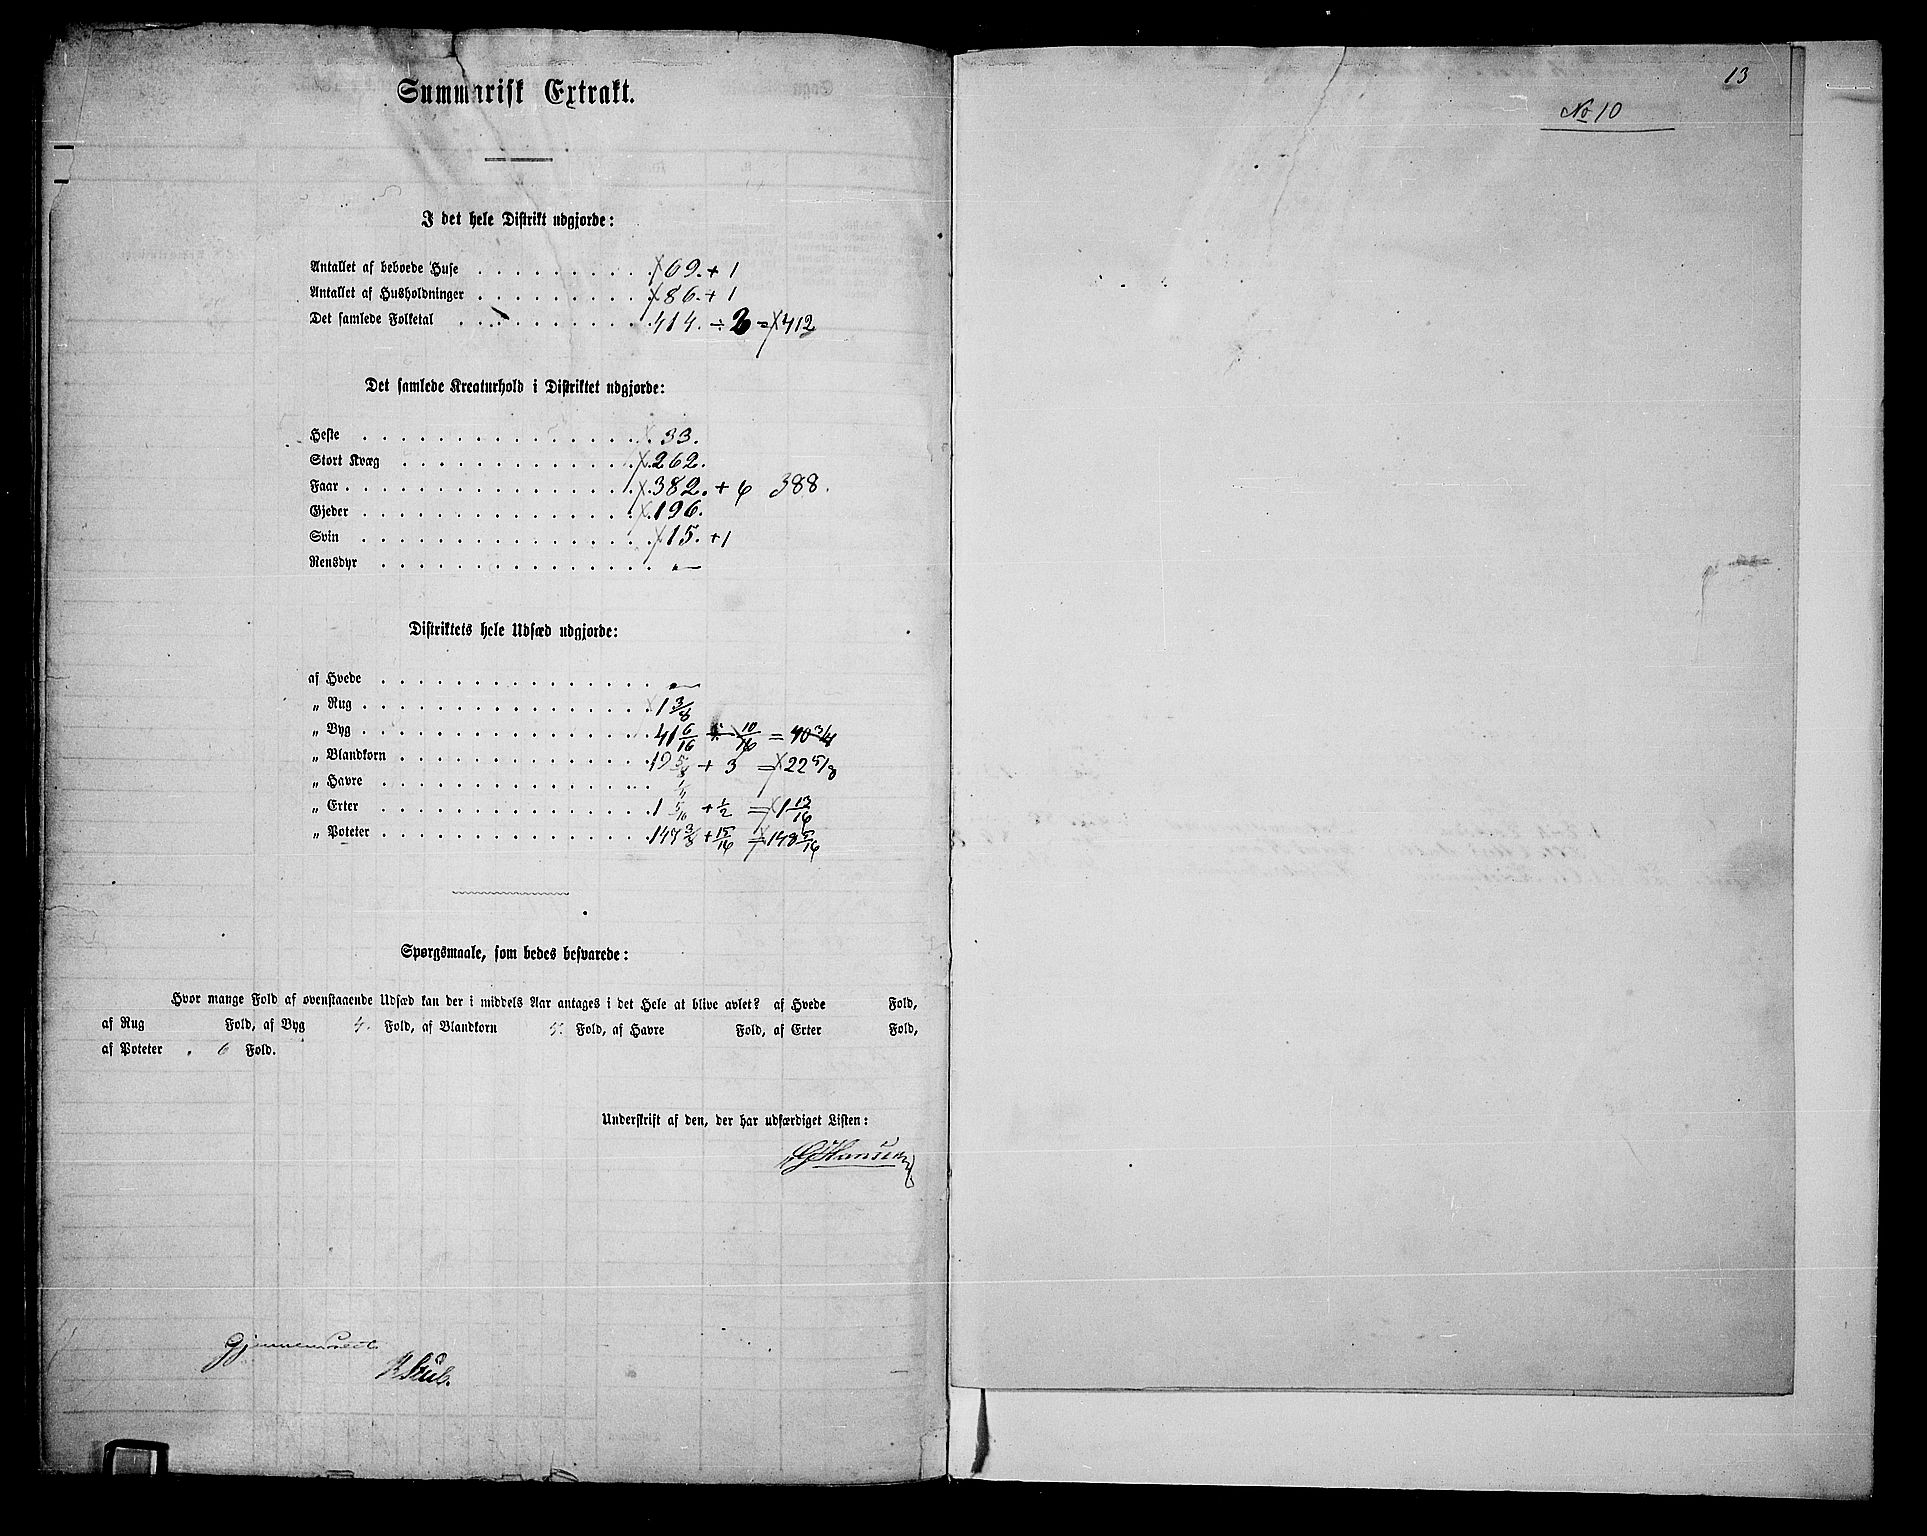 Summarisk Extrakt.
I det hele Distrikt udgjorde:
Antallet af beboede Huse . . . . . . . . . . × 69. + 1
Antallet af Husholdninger . . . . . . . . . . × 86. + 1
Det samlede Folketal . . . . . . . . . . 414. ÷ 2 = × 412
Det samlede Kreaturhold i Distriktet udgjorde:
Heste . . . . . . . . . . × 33.
Stort Kvæg . . . . . . . . . . × 262.
Faar . . . . . . . . . . × 382. + 6 388.
Gjeder . . . . . . . . . . × 196.
Svin . . . . . . . . . . × 15. + 1
Rensdyr . . . . . . . . . . —
Distriktets hele Udsæd udgjorde:
af Hvede . . . . . . . . . . —
„ Rug . . . . . . . . . . × 1 3/8
„ Byg . . . . . . . . . . 41 6/16 ÷ 10/16 = 40 3/4
„ Blandkorn . . . . . . . . . . 19 5/8 + 3 = × 22 5/8
„ Havre . . . . . . . . . .
„ Erter . . . . . . . . . . 1 5/16 + 1/2 = × 1 13/16
„ Poteter . . . . . . . . . . 147 3/8 + 15/16 = × 148 5/16
Spørgsmaale, som bedes besvarede:
Hvor mange Fold af ovenstaaende Udsæd kan der i middels Aar antages i det Hele at blive avlet? af Hvede Fold,
af Rug Fold, af Byg Fold, af Blandkorn Fold, af Havre Fold, af Erter Fold,
af Poteter 6 Fold.
Underskrift af den, der har udfærdiget Listen:
Hansen
Gjennemseet
13
No 10